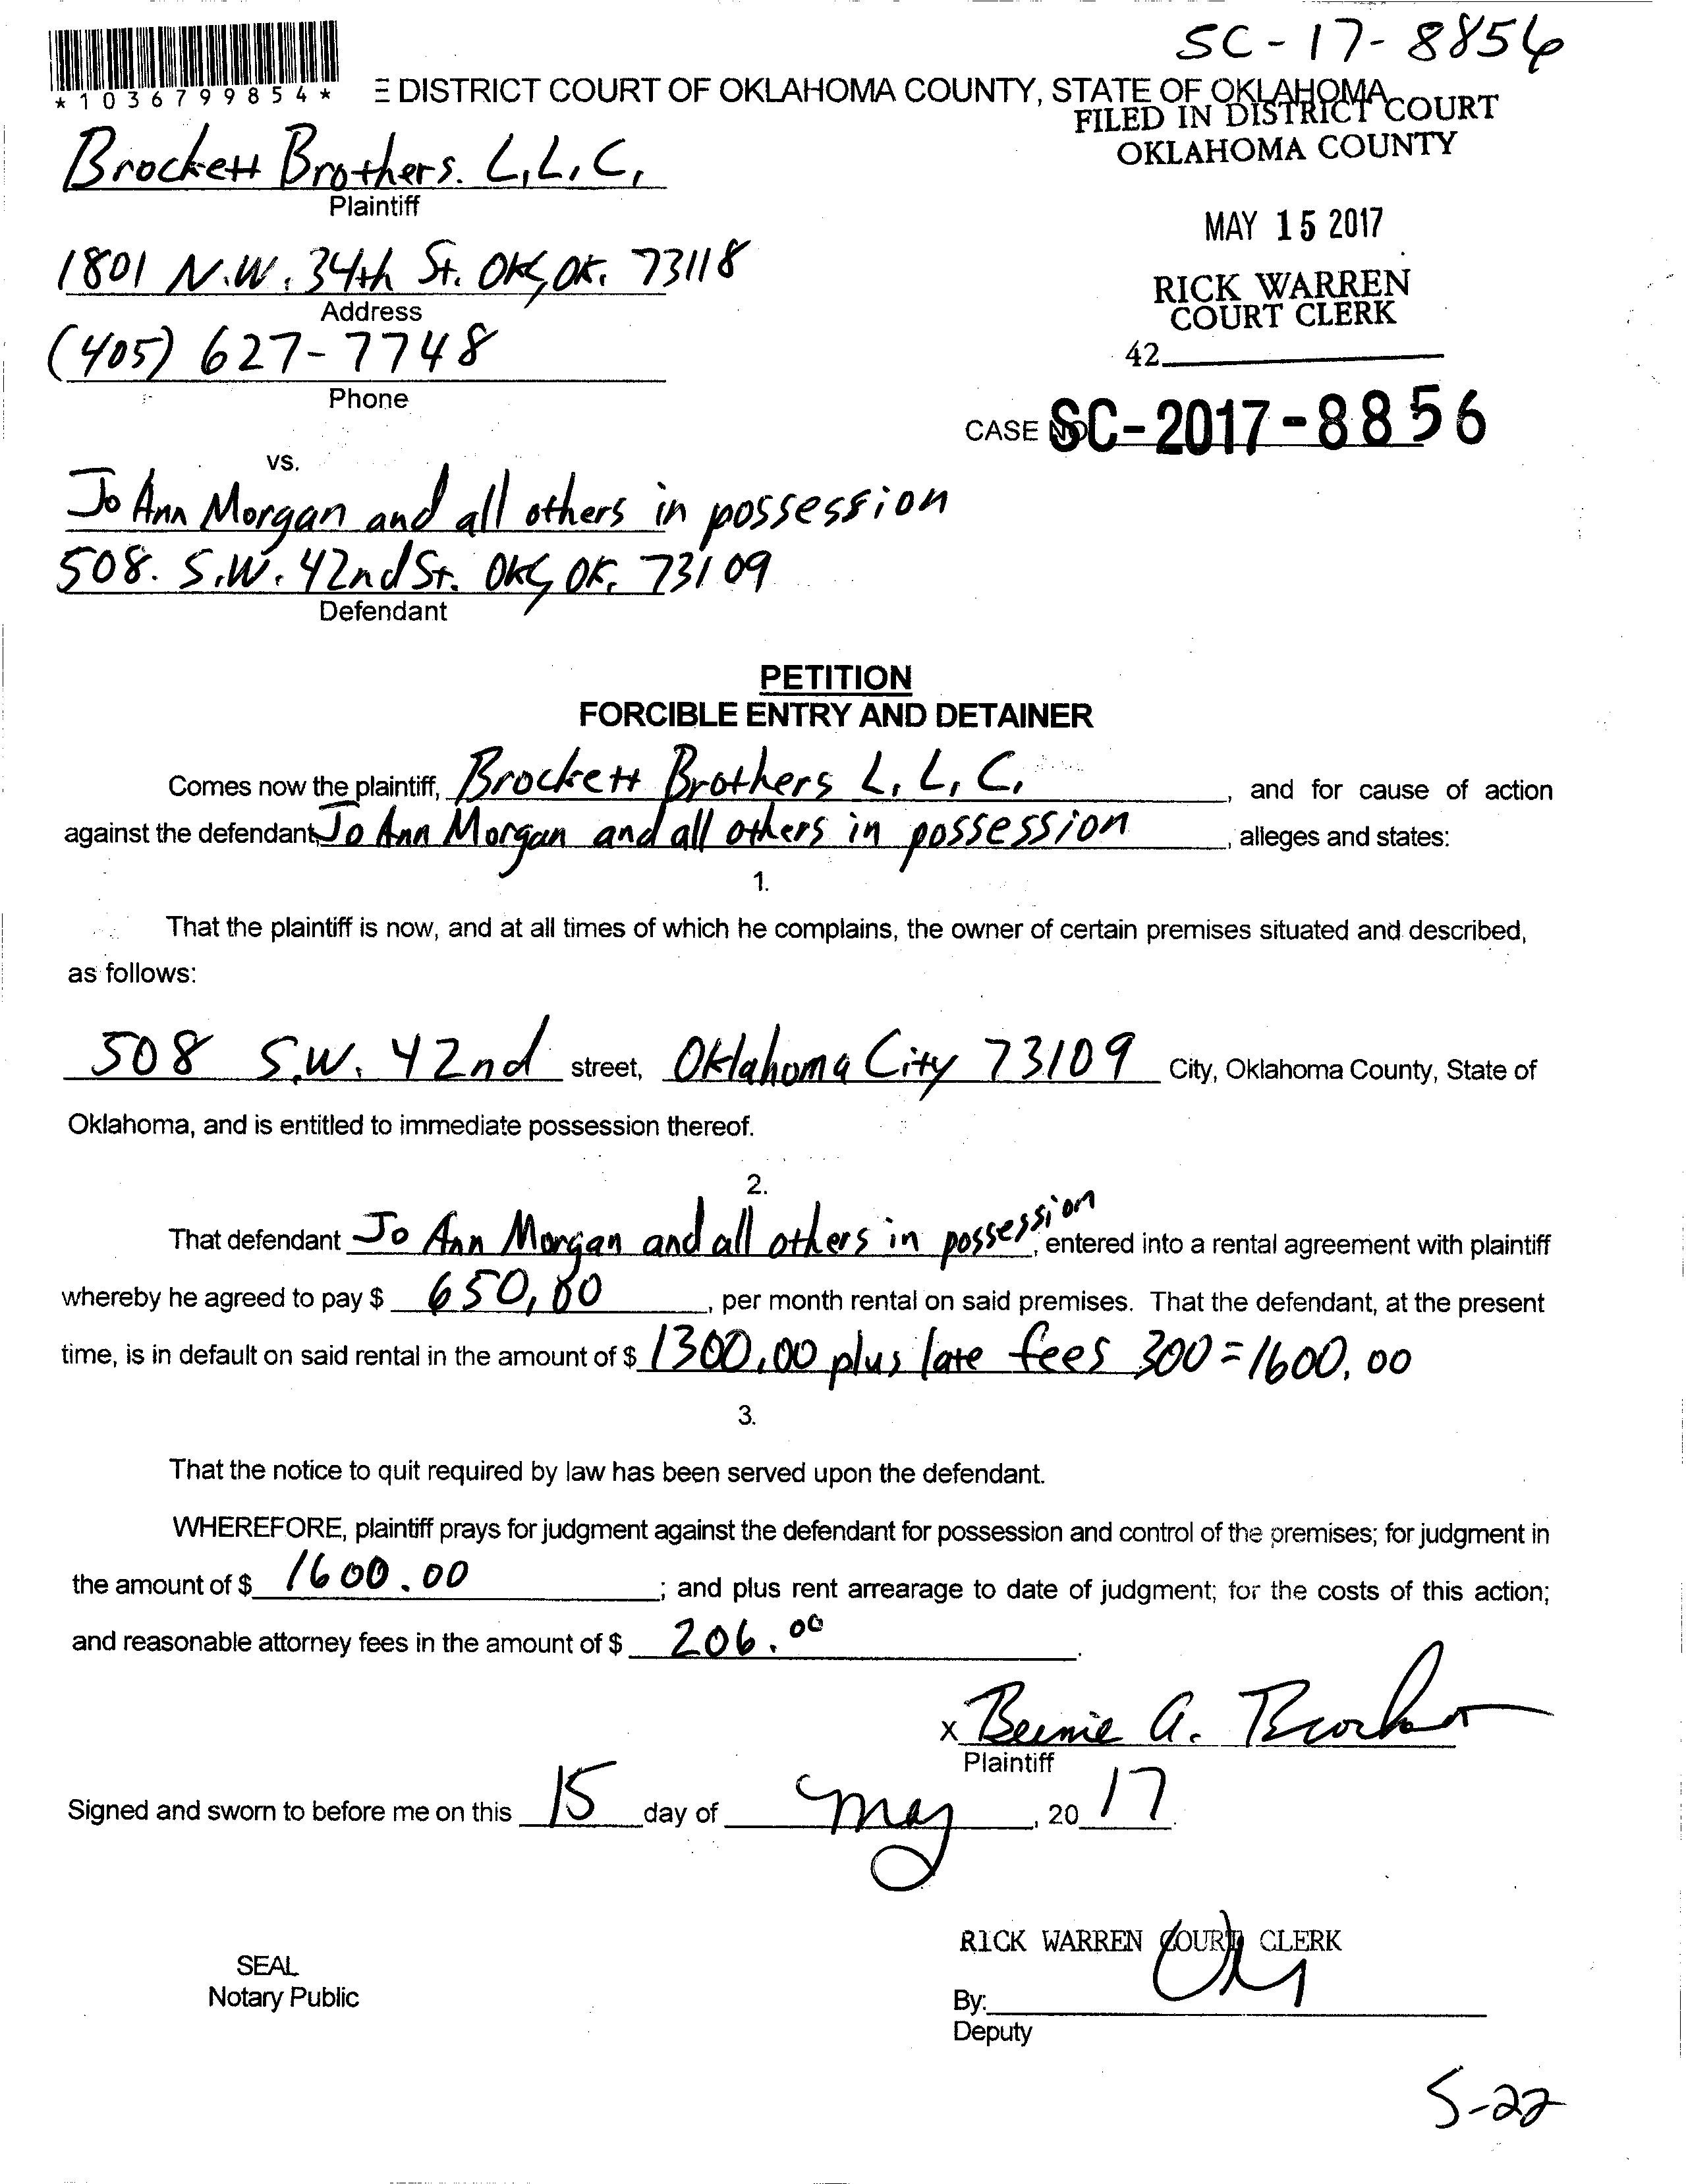 SC-17-8856
*1036799854*
E DISTRICT COURT OF OKLAHOMA COUNTY, STATE OF OKLAHOMA
FILED IN DISTRICT COURT
OKLAHOMA COUNTY
Brockett Brothers. L.L.C.
Plaintiff
MAY 15 2017
1801 N.W. 34th St. OKC, OK. 73118
Address
RICK WARREN
COURT CLERK
(405) 627-7748
Phone
42
CASE NO SC-2017-8856
vs.
Jo Ann Morgan and all others in possession
508. S.W. 42nd St. OKC, OK. 73109
Defendant
PETITION
FORCIBLE ENTRY AND DETAINER
Comes now the plaintiff, Brockett Brothers L.L.C. , and for cause of action
against the defendant, Jo Ann Morgan and all others in possession , alleges and states:
1.
That the plaintiff is now, and at all times of which he complains, the owner of certain premises situated and described,
as follows:
508 S.W. 42nd street, Oklahoma City 73109 City, Oklahoma County, State of
Oklahoma, and is entitled to immediate possession thereof.
2.
That defendant Jo Ann Morgan and all others in possession, entered into a rental agreement with plaintiff
whereby he agreed to pay $ 650.00 , per month rental on said premises. That the defendant, at the present
time, is in default on said rental in the amount of $ 1300.00 plus late fees 300 = 1600.00
3.
That the notice to quit required by law has been served upon the defendant.
WHEREFORE, plaintiff prays for judgment against the defendant for possession and control of the premises; for judgment in
the amount of $ 1600.00 ; and plus rent arrearage to date of judgment; for the costs of this action;
and reasonable attorney fees in the amount of $ 206.00 .
X Bernie A. Brockett
Plaintiff
Signed and sworn to before me on this 15 day of May , 20 17.
RICK WARREN COURT CLERK
SEAL
Notary Public
By:
Deputy
5-22